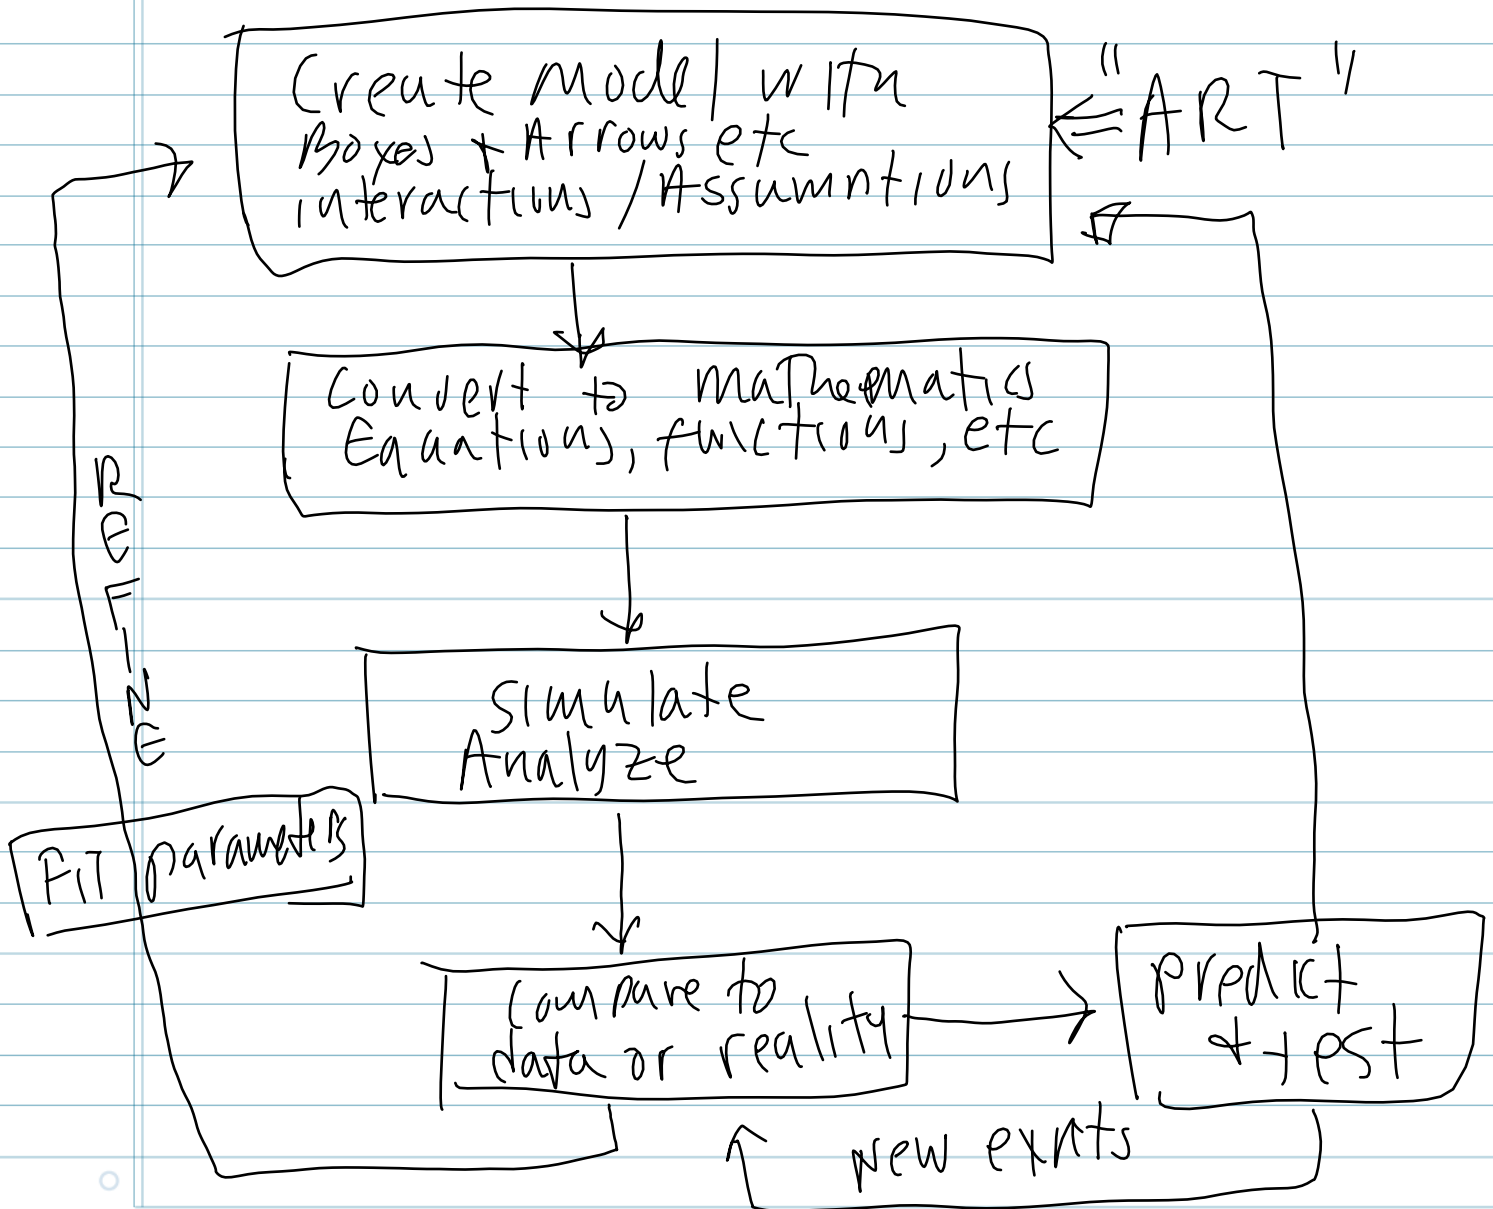 Create Model with
Boxes + Arrows etc
interactions / Assumptions
"ART"
Convert to mathematics
Equations, functions, etc
REFINE
Simulate
Analyze
FiT parameters
Compare to
data or reality
predict
+ test
New expts